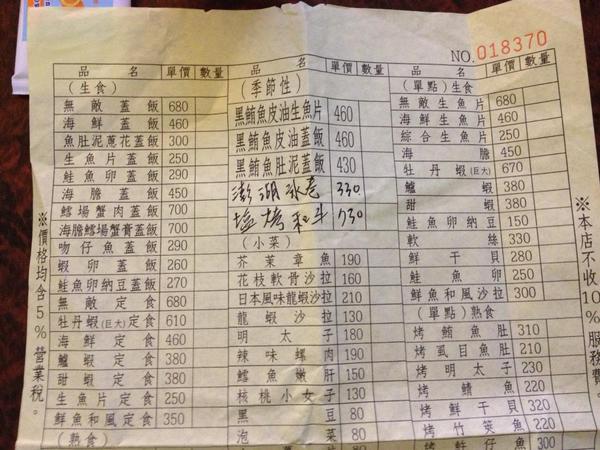 NO. 018370
品名 單價 數量
(生食)
無敵蓋飯 680
海鮮蓋飯 460
魚肚泥蔥花蓋飯 300
生魚片蓋飯 250
鮭魚卵蓋飯 290
海膽蓋飯 450
鱈場蟹肉蓋飯 700
海膽鱈場蟹膏蓋飯 700
吻仔魚蓋飯 290
蝦卵蓋飯 260
鮭魚卵納豆蓋飯 270
無敵定食 680
牡丹蝦(巨大)定食 610
海鮮定食 460
鱸蝦定食 380
甜蝦定食 380
生魚片定食 250
鮮魚和風定食 350
(熟食)
品名 單價 數量
(季節性)
黑鮪魚皮油生魚片 460
黑鮪魚皮油蓋飯 460
黑鮪魚肚泥蓋飯 430
澎湖 330
塩烤 730
(小菜)
芥茉章魚 190
花枝軟骨沙拉 160
日本風味龍蝦沙拉 210
龍蝦沙拉 130
明太子 180
辣味螺肉 190
鱈魚嫩肝 150
核桃小女子 130
黑豆 80
泡菜 80
品名 單價 數量
(單點)生食
無敵生魚片 680
海鮮生魚片 460
綜合生魚片 250
海膽 450
牡丹蝦(巨大) 670
鱸蝦 380
甜蝦 380
鮭魚卵納豆 150
軟絲 330
鮮干貝 280
鮭魚卵 250
鮮魚和風沙拉 300
(單點)熟食
烤鮪魚肚 310
烤虱目魚肚 210
烤明太子 230
烤鯖魚 220
烤鮮干貝 320
烤竹筴魚 220
300
※價格均含5%營業稅。
※本店不收10%服務費。